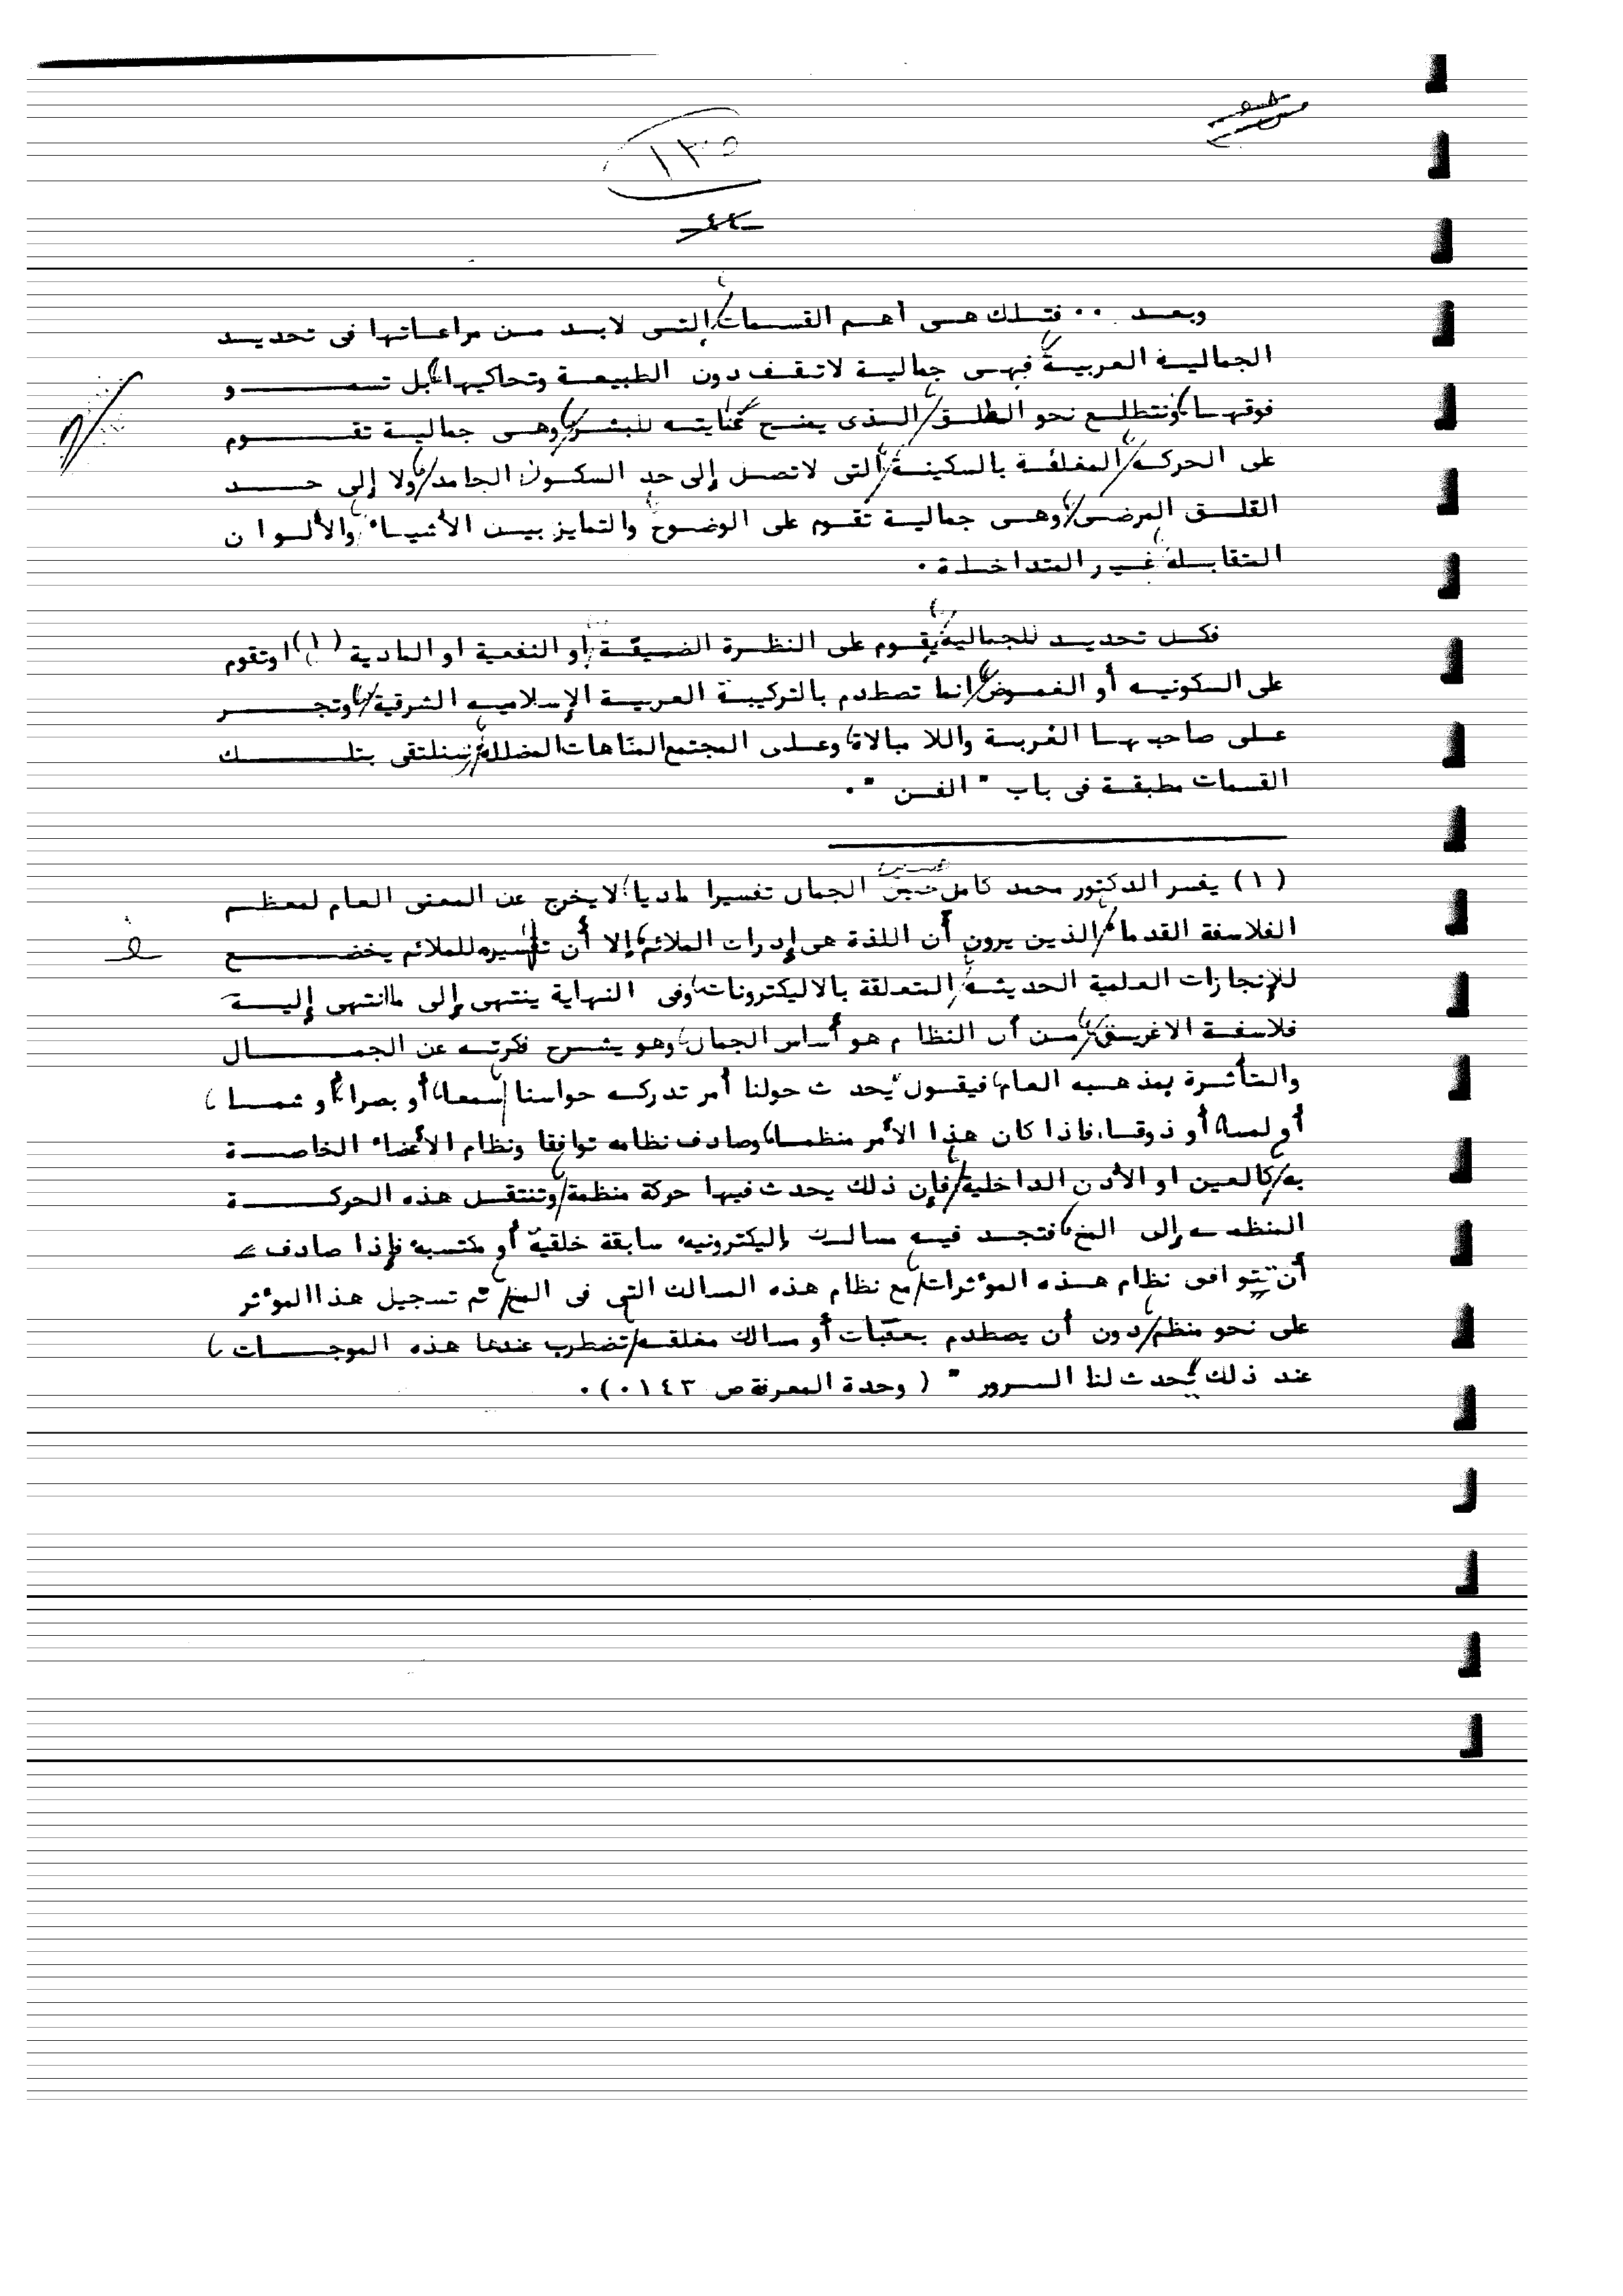 ١٣٥
-٤٤-
وبعـد ٠٠ فتـلك هـى أهـم القسـمات، التـى لابـد مـن مراعـاتها فى تحديـد
الجماليـة العربيـة، فهـى جماليـة لاتـقـف دون الطبيعـة وتحاكيها، بل تسمـــو
فوقهـا، وتتطلـع نحو المطلـق، الـذى يمنـح عنايتـه للبشـر، وهـى جماليـة تقـــوم
على الحركـة، المغلفـة بالسكينـة، التى لاتصـل إلى حد السكـون الجامد، ولا إلى حـــد
القلـق المرضـى، وهـى جماليـة تقـوم على الوضـوح، والتمايز بيـن الأشيـاء، والألـوان
المتقابـلة، غيـر المتداخـلة ٠
فكـل تحديـد للجماليـة، يقـوم على النظـرة الضيقـة، أو النفعية او المادية (١) او تقوم
على السكونيـه أو الغمـوض، إنما تصطدم بالتركيبـة العربيـة الإسلاميـه الشرقية، وتجـــر
عـلى صاحبهـا الغربـة واللا مبالاة، وعـلى المجتمع المتاهات المضللة، سنلتقى بتلـــك
القسمات مطبقـة فى باب " الفـن " ٠
(١) يفسر الدكتور محمد كامل حسين الجمال تفسيرا ماديا، لايخرج عن المعنى العام لمعظـم
الفلاسفة القدماء، الذين يرون أن اللذة هى إدراك الملائم، إلا أن تفسيره للملائم يخضـــع
للإنجازات العلمية الحديثـة، المتعلقة بالاليكترونات، وفى النهاية ينتهى إلى ما انتهى إليـة
فلاسفـة الاغريـق، مـن أن النظام هو أساس الجمال، وهو يشـرح فكرتـه عن الجمـــال
والمتأثـرة بمذهبـه العام، فيقول "يحدث حولنا أمر تدركـه حواسنا، سمعا، أو بصرا، أو شمـا،
أو لمسا، أو ذوقـا، فاذا كان هذا الأمر منظمـا، وصادف نظامه توافقا ونظام الأعضاء الخاصـة
به، كالعين او الأذن الداخلية، فإن ذلك يحدث فيها حركة منظمة، وتنتقـل هذه الحركـــة
المنظمـه إلى المخ، فتجـد فيـه مسالـك إليكترونيه سابقة خلقية أو مكتسبة، فإذا صادف
أن يتوافق نظام هـذه الموءثرات، مع نظام هذه المسالك التى فى المخ، تم تسجيل هذا الموءثر
على نحو منظم، دون أن يصطدم بعقبات أو مسالك مغلقـه، تضطرب عندها هذه الموجـات،
عند ذلك يحدث لنا السرور " ( وحدة المعرفة ص ١٤٣٠) ٠